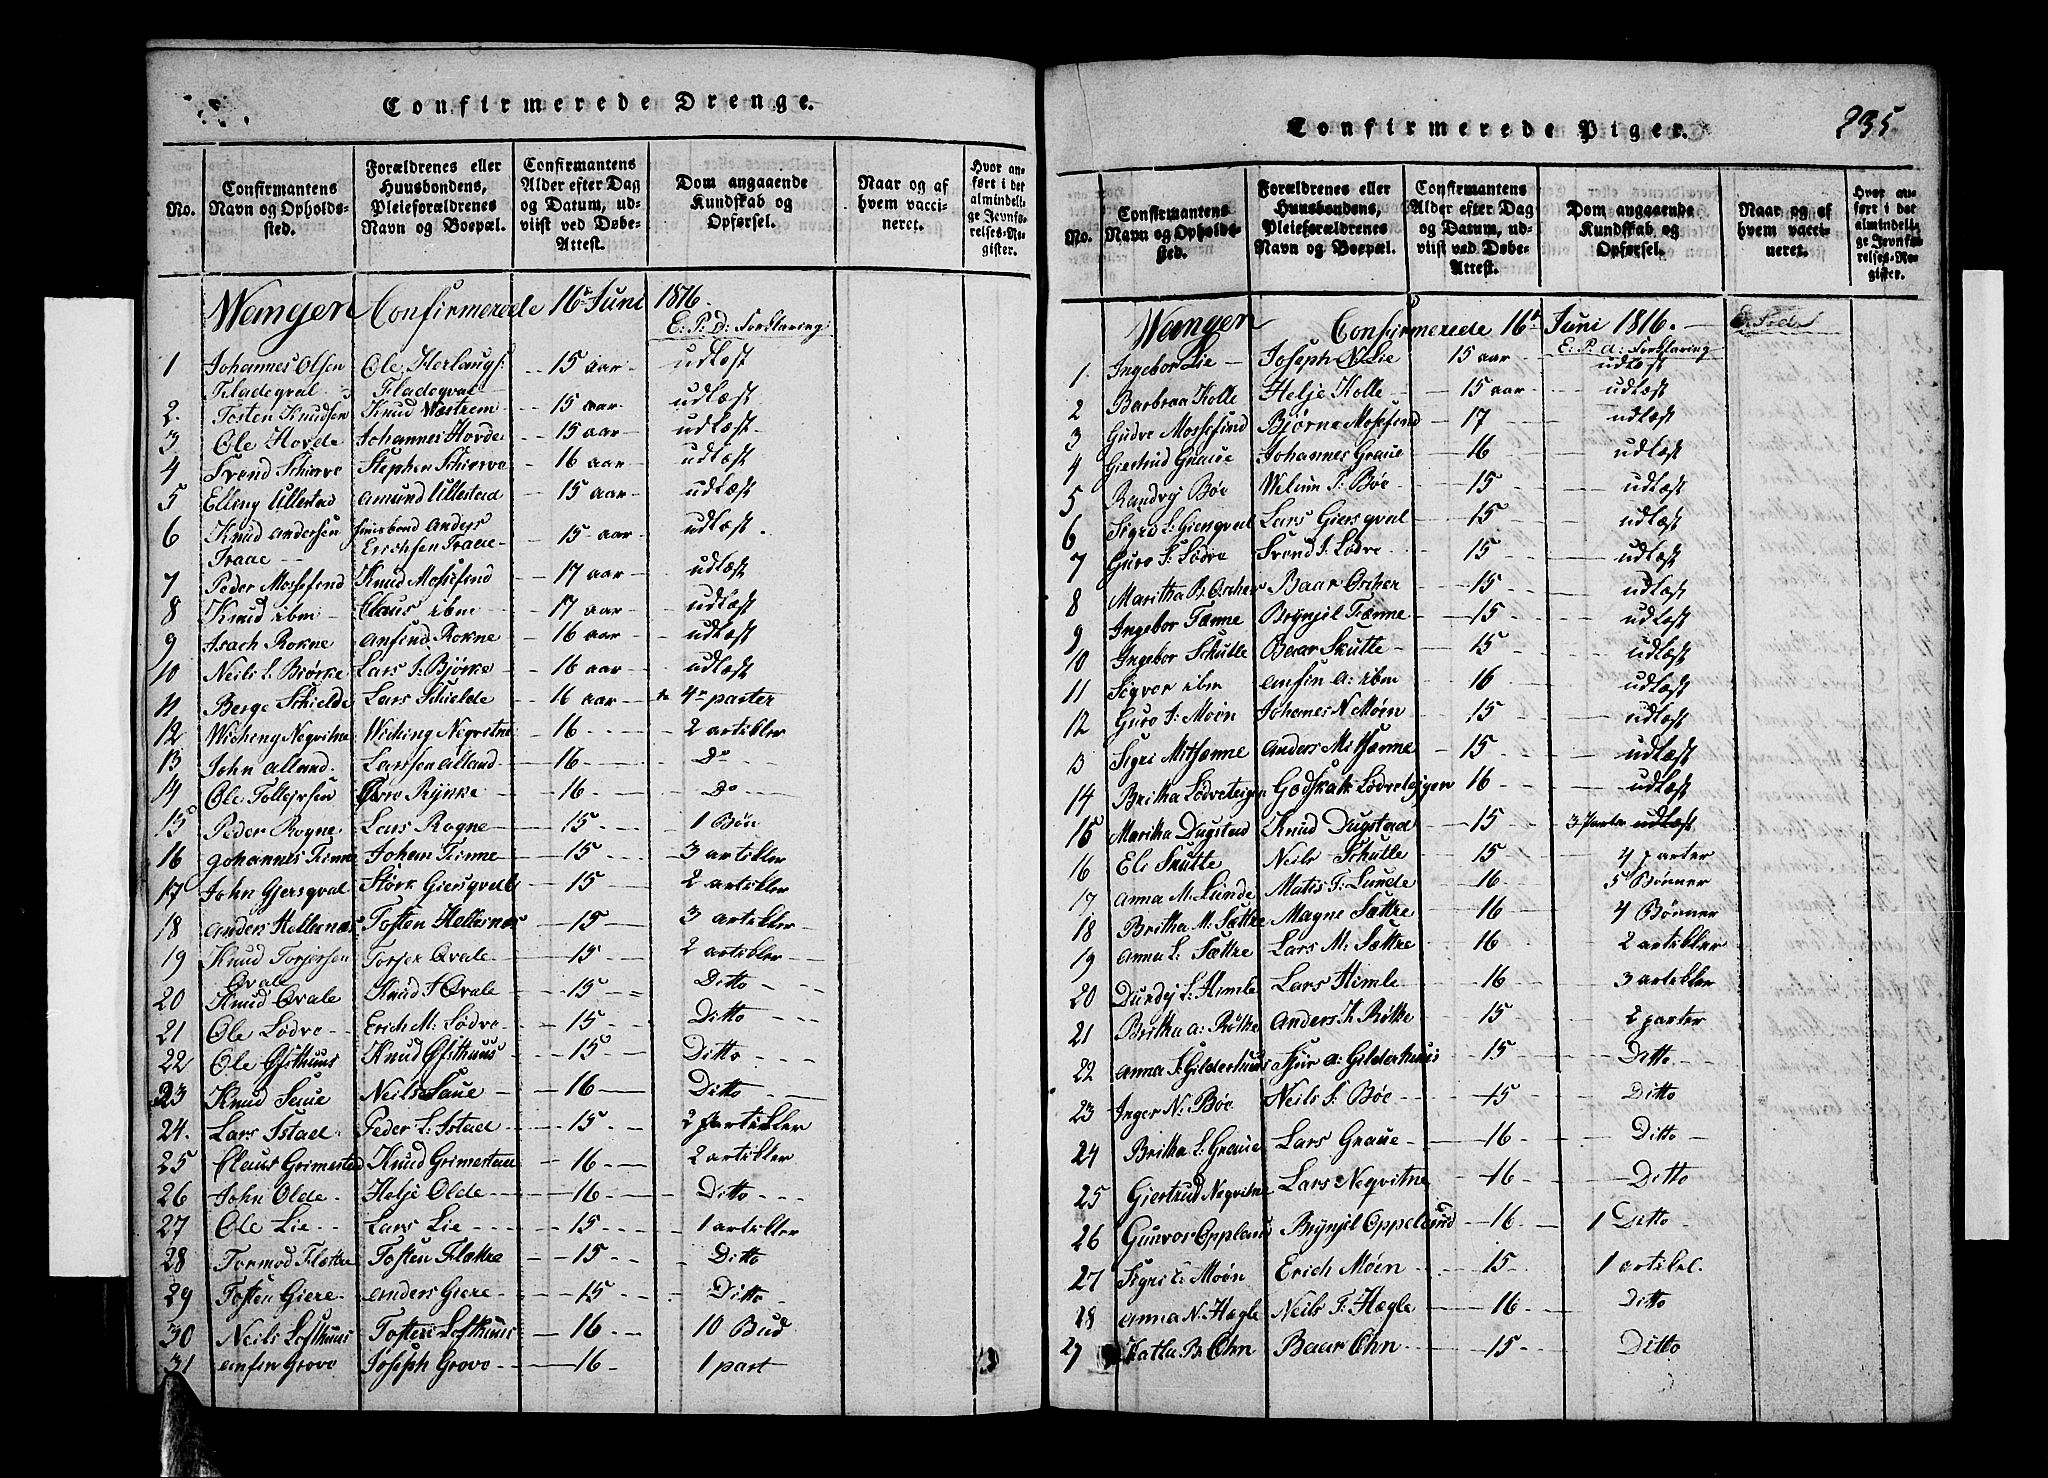 Confirmerede Drenge.
No.
Confirmantens Navn og Opholdssted.
Forældrenes eller Huusbondens, Pleieforældrenes Navn og Boepæl.
Confirmantens Alder efter Dag og Datum, udviist ved Døbe-Attest.
Dom angaaende Kundskab og Opførsel.
Naar og af hvem vaccineret.
Hvor anført i det almindelige Jevnførelses-Register.
Wangen Confirmerede 16de Juni 1816.
E: P: d: Forklaring
1 Johannes Olsen Fladeqval Ole Herlaugs: Fladeqval 15 aar udlæst
2. Tosten Knudsen Knud Wæstrem 15 aar udlæst
3 Ole Hovde Johannes Hovde 15 aar udlæst
4 Svend Schierve Stephen Schierve 16 aar udlæst
5 Elleng Ullestad Amund Ullestad 15 aar udlæst
6 Knud Andersen Traae Huusbond Anders Erichsen Traae 15 aar udlæst
7 Peder Mossefind Knud Mossefind 17 aar udlæst
8 Knud ibm Claus ibm 17 aar udlæst
9 Isach Rokne Anfind Rokne 16 aar udlæst
10 Neils L. Biørke Lars I. Bjørke 16 aar udlæst
11 Berge Schielde Lars Schielde 16 aar 4r parter
12 Wicheng Neqvitne Wiching Neqvitne 16 2 artikler
13 John Alland Larssen Alland 16 Do
14 Ole Tollefsen Rynke 16 Do
15 Peder Rogne Lars Rogne 15 1 Bøn
16 Johannes Tinne Johan Tinne 15 3 artikler
17 John Gjersqval Størk Giersqvall 15 2 artikler
18 Anders Hellernæs Tosten Hellernæs 15 3 artikler
19 Knud Torjersen Qvale Torjer Qvale 15 2 artikler
20 Knud Qvale Knud Qvale 15 Ditto
21 Ole Lødve Erich M: Lødve 15 Ditto
22 Ole Øfsthuus Knud Øfsthuus 15 Ditto
23 Knud Saue Neils Saue 16 Ditto
24. Lars Istad Peder L: Istad 15 2 artikler
25 Claus Grimestad Knud Grimestad 16 2 artikler
26 John Olde Helje Olde 16 Ditto
27 Ole Lie Lars Lie 15 1 artikler
28 Tormod Flække Tosten Flække 15 Ditto
29 Tosten Giere Anders Giere 15 Ditto
30 Neils Lofthuus Tosten Lofthuus 16 10 Bud
31 Anfin Grovo Joseph Grovo 16 1 part
Confirmerede Piger.
235.
No.
Confirmantens Navn og Opholdssted.
Forældrenes eller Huusbondens, Pleieforældrenes Navn og Boepæl.
Confirmantens Alder efter Dag og Datum, udviist ved Døbe-Attest.
Dom angaaende Kundskab og Opførsel.
Naar og af hvem vaccineret.
Hvor anført i det almindelige Jevnførelses-Register.
Wangen Confirmerede 16de Juni 1816.
E: P: d: Forklaring
1. Ingebor Lie Joseph N Lie 15 aar udlæst
2 Barbraa Kolle Helje Kolle 15 aar udlæst
3 Gudve Mossefind Bjørne Mosefind 17 udlæst
4 Giertrud Graue Johannes Graue 16 udlæst
5 Randvej Bøe Wilum I: Bøe 15 udlæst
6 Sigrid L: Giersqval Lars Giersqval 15 udlæst
7 Guro S: Lødve Svend I. Lødve 15 udlæst
8 Maritha B. Oscher Baar Oscher 15 udlæst
9 Ingebor Tænne Brynjel Tænne 15 udlæst
10 Ingebor Skutle Baar Skutle 15 udlæst
11 Sigvor ibm Anfin A: ibm 16 udlæst
12 Guro I: Moën Johanes N Moën 15 udlæst
13 Sigri Mitsænne Anders Mitsænne 15 udlæst
14 Britha Lødveteigen Godskalk Lødveteigen 16 udlæst
15 Marika Dugstad Knud Dugstad 15 3 Parter udlæst
16 Eli Skutle Neils Schutle 15 4 parter
17 Anna M. Lunde Matis T: Lunde 16 5 Bønner
18 Britha M: Sættre Magne Sættre 16 4 Bønner
19 Anna L. Sættre Lars M: Sættre 16 2 artikler
20 Durdej L: Himle Lars Himle 16 3 artikler
21 Britha A: Røthe Anders K Røthe 15 2 parter
22 Anna S: Gilderhuus Siur A: Gilderhuus 15 Ditto
23 Inger N: Bøe Neils I: Bøe 15 Ditto
24 Britha L: Graue Lars Graue 16 Ditto
25 Giertrud Neqvitne Lars Neqvitne 16 Ditto
26 Gunvor Oppland Brynjel Oppeland 16 1 Ditto
27 Sigri E: Moën Erich Moën 15 1 artikel.
28 Anna N: Hægle Neils T: Hægle 16 Ditto
29 Katla B: Ohn Baar Ohn 15 Ditto